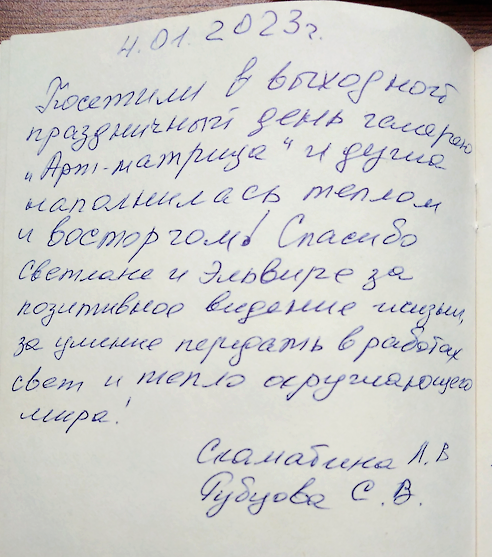 4.01.2023г.
Посетили в выходной
праздничный день галерею
„Арт-матрица“ и душа
наполнилась теплом
и восторгом! Спасибо
Светлане и Эльвире за
позитивное видение жизни,
за умение передать в работах
свет и тепло окружающего
мира!
А.В
С.В.